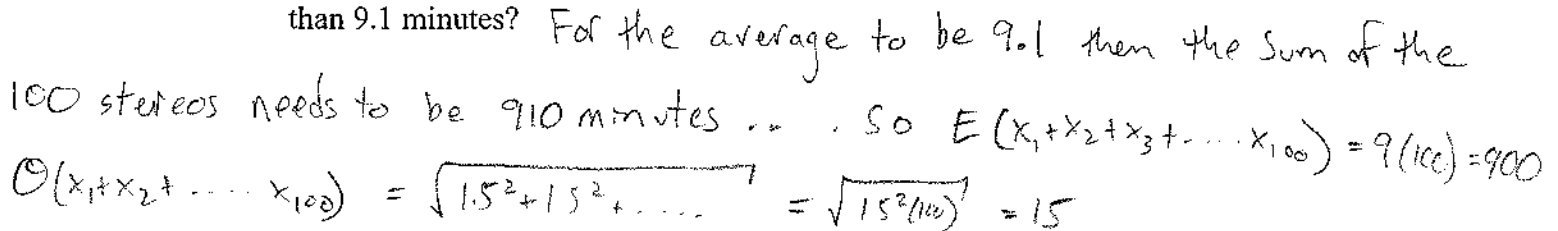 than 9.1 minutes? For the average to be 9.1 then the sum of the
100 stereos needs to be 910 minutes ... . so E(x₁+x₂+x₃+.....x₁₀₀) = 9(100) = 900
σ(x₁+x₂+ ..... x₁₀₀) = √1.5²+1.5²+..... = √1.5²(100) = 15